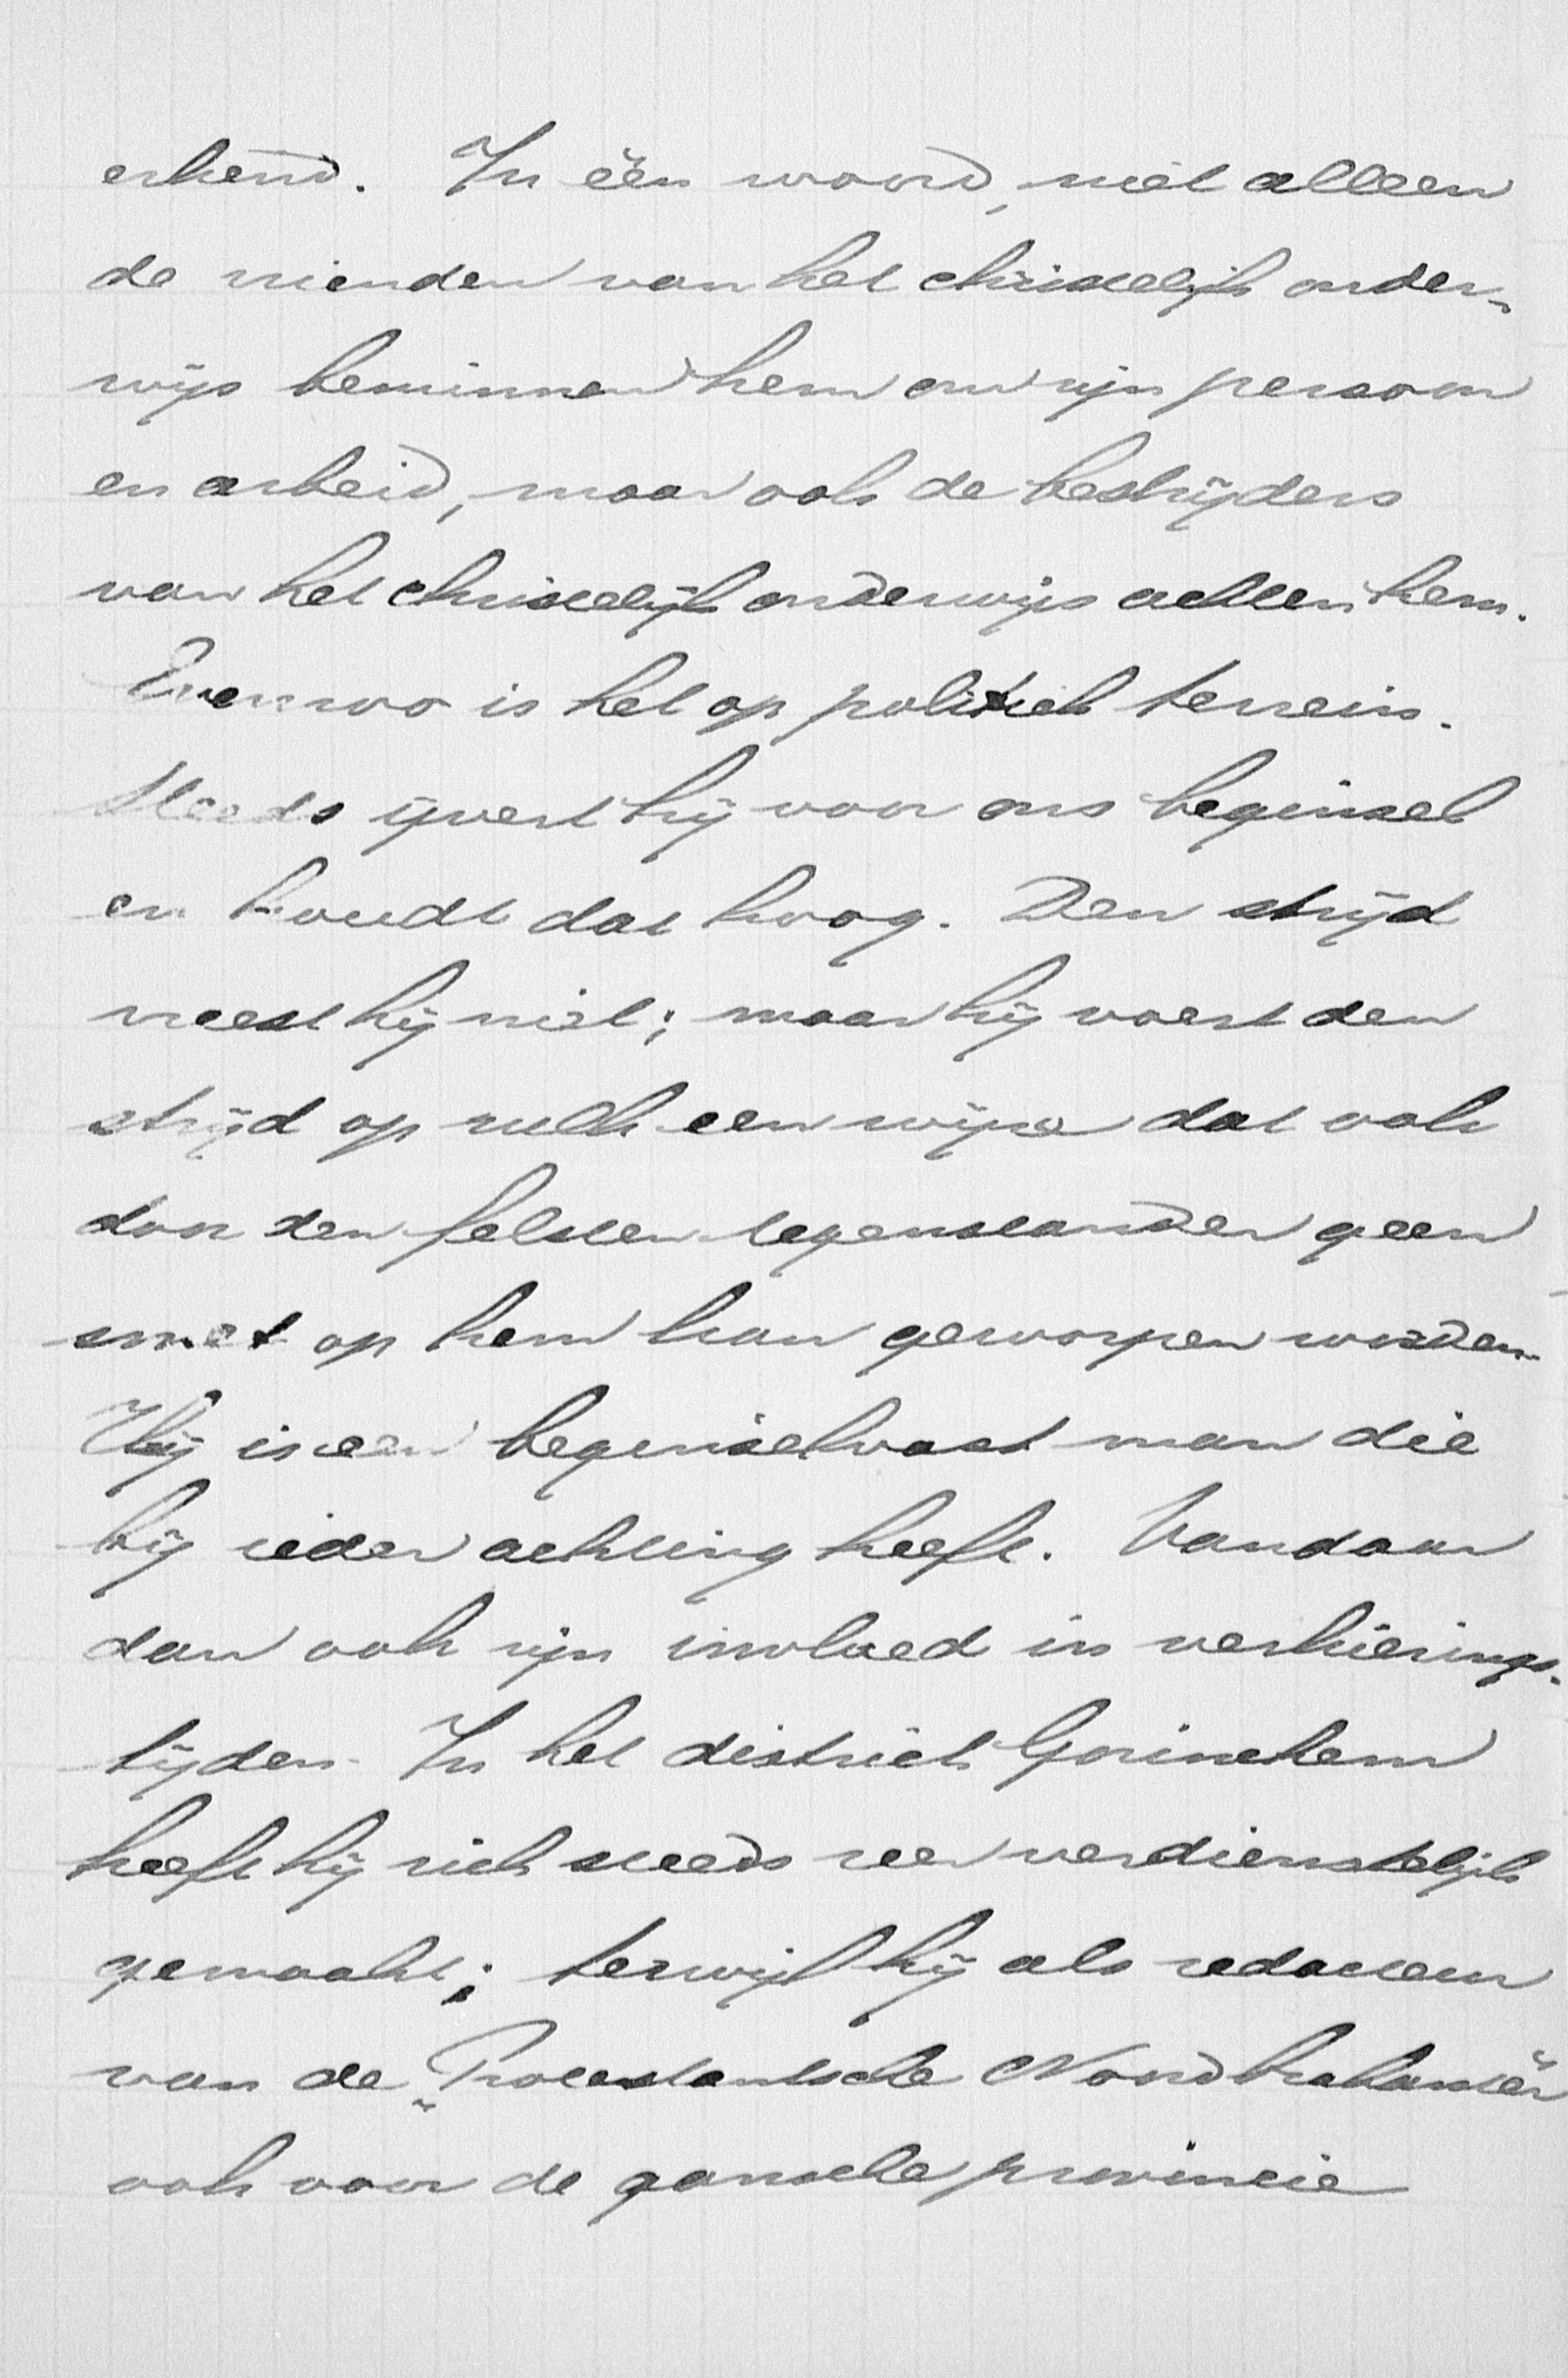 erkend. In één woord, niet alleen
de vrienden van het christelijk onder-
wijs beminnen hem om zijn persoon
en arbeid, maar ook de bestrijders
van het christelijk onderwijs achten hem.
Evenzoo is het op politiek terrein.
Steeds ijvert hij voor ons beginsel
en houdt dat hoog. Den strijd
vreest hij niet; maar hij voert den
strijd op zulk een wijze dat ook
door den felsten tegenstander geen
smet op hem kan geworpen worden.
Hij is een beginselvast man die
bij ieder achting heeft. Vandaar
dan ook zijn invloed in verkiezings-
tijden. In het district Gorinchem
heeft hij zich steeds zeer verdienstelijk
gemaakt; terwijl hij als redacteur
van de „Protestantsche Noordbrabanter
ook voor de gansche provincie